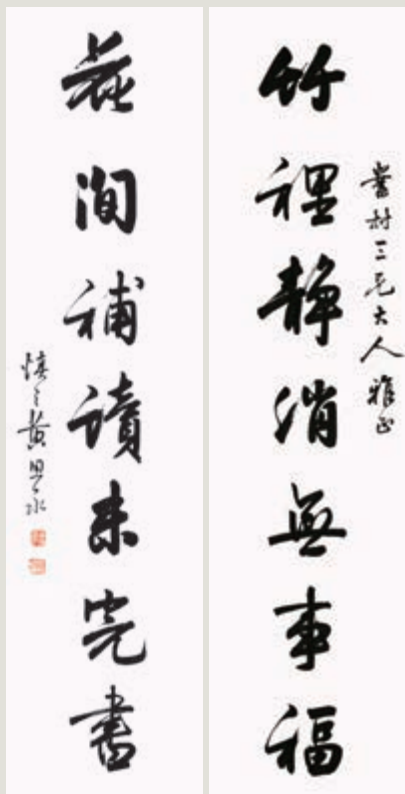 竹裡靜消無事福
村三兄大人雅正
花間補讀未完書
慎之黃思永